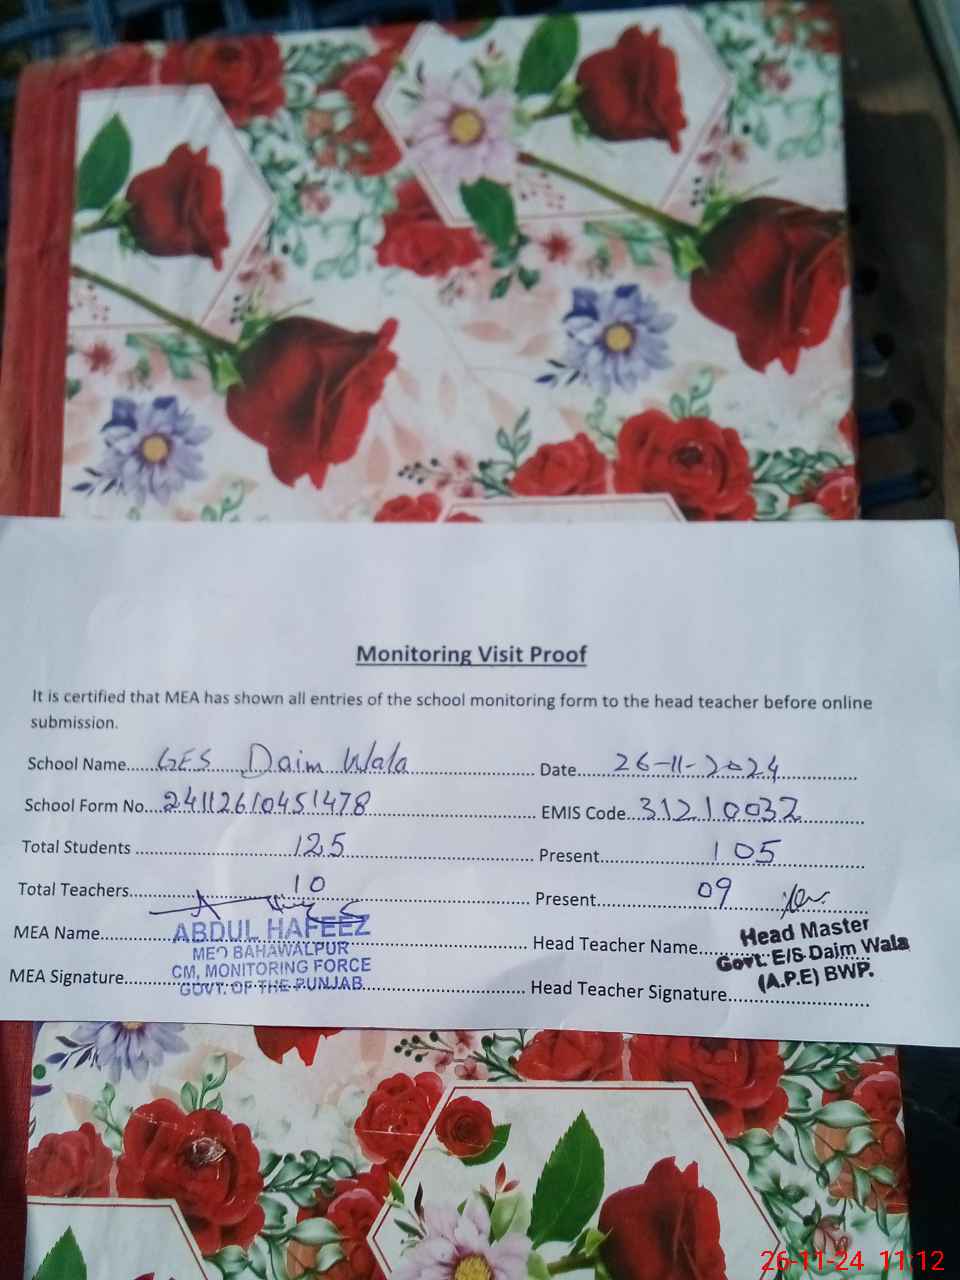 Monitoring Visit Proof
It is certified that MEA has shown all entries of the school monitoring form to the head teacher before online
submission.
School Name......GES Daim Wala...... Date......26-11-2024......
School Form No...24112610451478...... EMIS Code...31210032......
Total Students ......125...... Present......105......
Total Teachers......10...... Present......09......
MEA Name...... ABDUL HAFEEZ
MEO BAHAWALPUR
CM, MONITORING FORCE
GOVT. OF THE PUNJAB
MEA Signature......
Head Teacher Name...... Head Master
Govt: E/S Daim Wala
(A.P.E) BWP.
Head Teacher Signature......
26-11-24 11:12